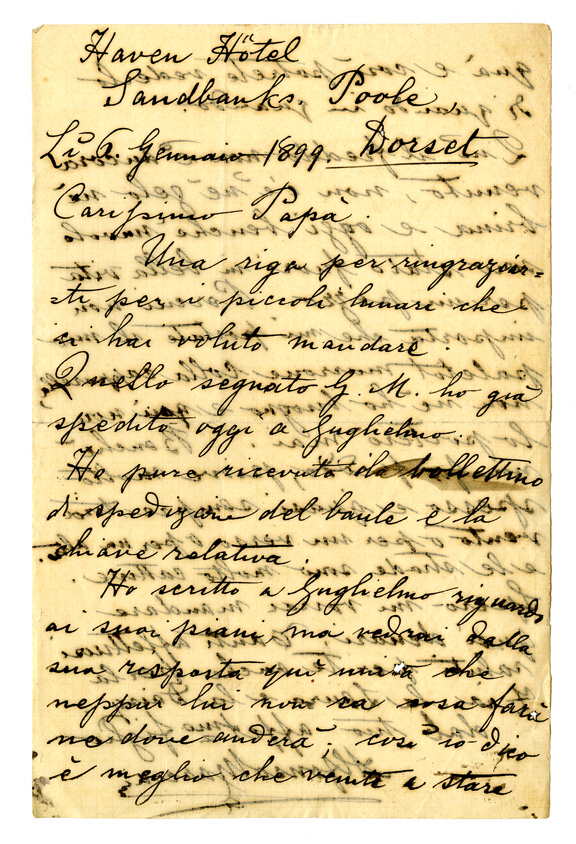 Haven Hôtel
Sandbanks Poole
Dorset
Li 6 Gennaio 1899
Carissimo Papà.
Una riga per ringraziar=
=ti per i piccoli lunari che
ci hai voluto mandare.
Quello segnato G. M. ho già
spedito oggi a Guglielmo.
Ho pure ricevuto il bollettino
di spedizione del baule e la
chiave relativa.
Ho scritto a Guglielmo riguardo
ai suoi piani ma vedrai dalla
sua risposta qui unita che
neppur lui non sa cosa farà
ne dove anderà. così io dico
è meglio che venite a stare